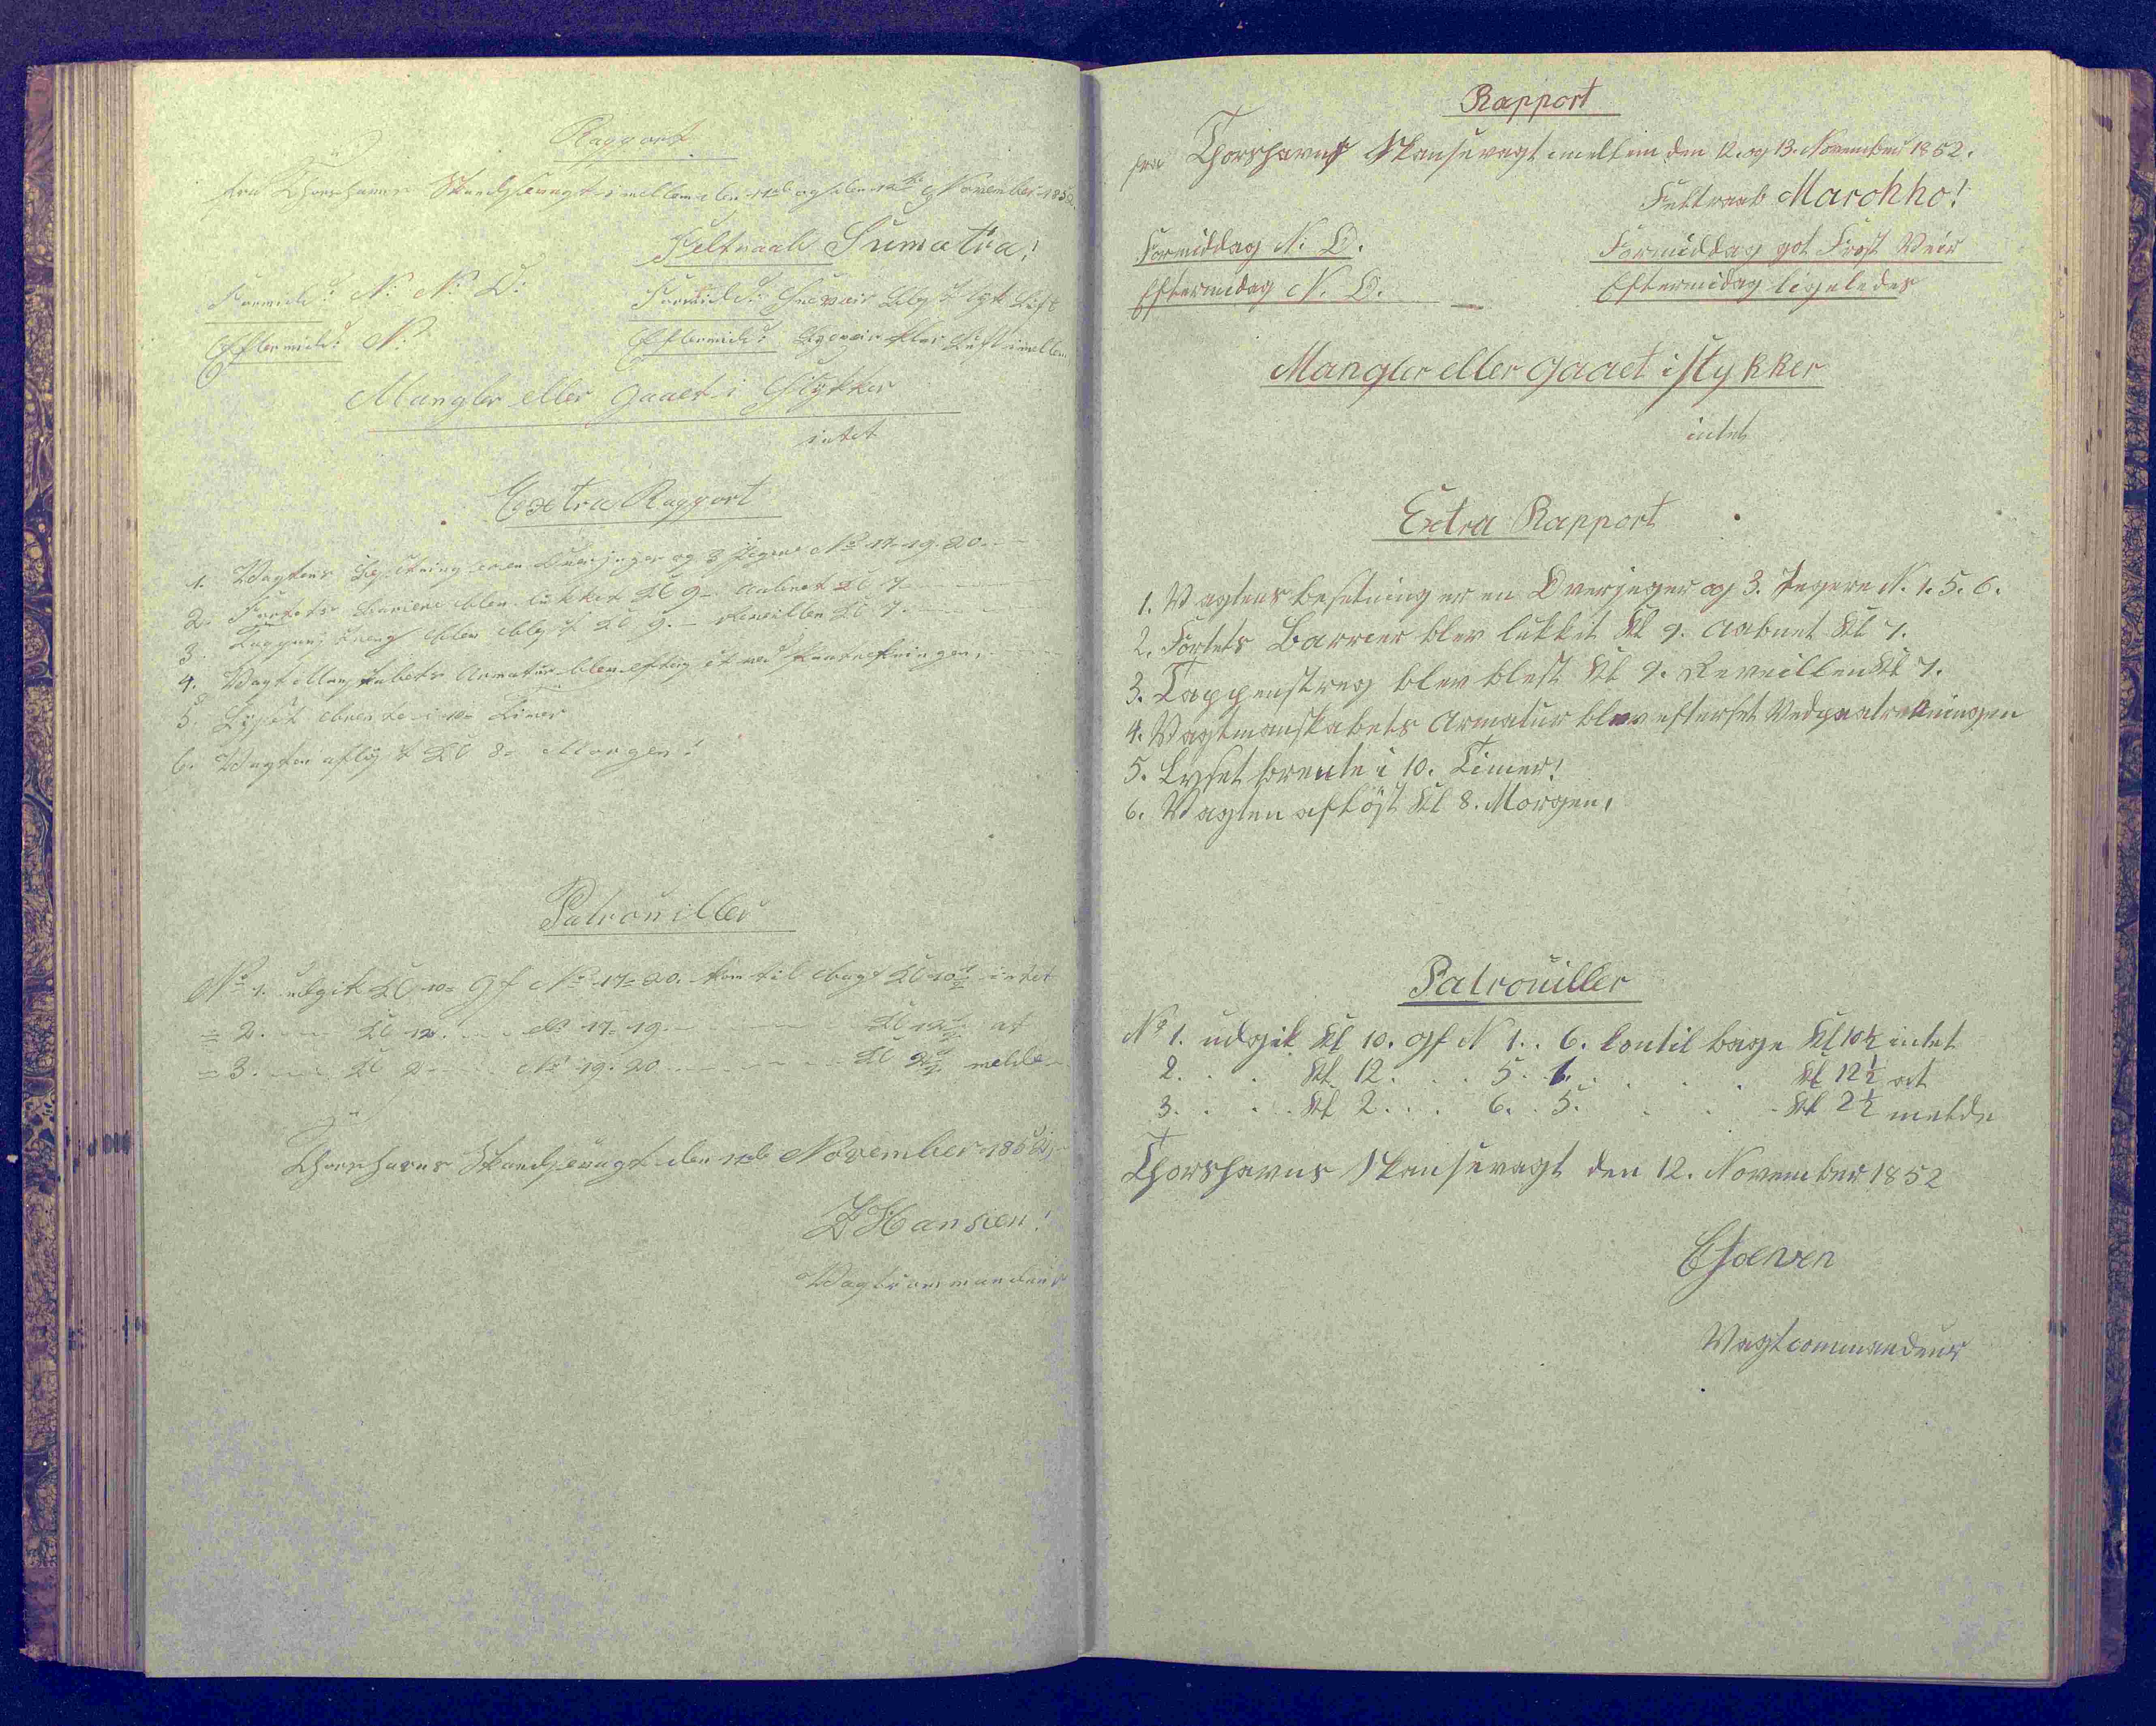 Rapport
fra Thorshavns Skandsevagt imellem den 11te og den 12te November 1852.
Feltraab Sumatra!
Formidd: N: N: O:
Formidd:
Eftermidd: N:
Eftermidd:
Mangler eller gaaet i Stykker
intet
Extra Rapport
1. Vagtens Besetning er en Overjeger og 3 Jegere No 17. 19. 20.
2. Fortets Bariere blev lükket Kl 9. Aabnet Kl 7.
3. blev blæst Kl 9. Reveillen Kl 7.
4. Vagt Mandskabets Armatur blev efterset ved Paatredningen.
5. Lyset brente i 10 Timer
6. Vagten afløst Kl 8. Morgen!
Patrouiller
No 1. udgik Kl 10. gf No 17. 20. kom tilbage Kl 10½ intet
= 2. Kl 12. No 17. 19. Kl 12½ at
= 3. Kl 2 No 19. 20 Kl 2½ melde
Thorshavns Skandsevagt den 11te November 1852.
Hansen!
Vagtcommandeur
Rapport
fra Thorshavns Skansevagt imellem den 12. og 13. November 1852.
Feltraab Marokko!
Formiddag N. O.
Formiddag got Frost Veir
Eftermidag N. O.
Eftermidag ligeledes
Mangler eller gaaet i Stykker
intet
Extra Rapport
1. Vagtens besetning er en Overjeger og 3. Jegere N. 1. 5. 6.
2. Fortets Barrier blev lukkit Kl 9. Aabnet Kl 7.
3. Tappenstreg blev blest Kl 9. Reveillen Kl 7.
4. Vagtmanskabets Armatur blev efterset Ved paatredningen
5. Lyset brente i 10. Timer!
6. Vagten afløst Kl 8. Morgen,
Patrouiller
No 1. udgik Kl 10. gf N 1. . 6. kom tilbage Kl 10½ intet
2. . . Kl 12. . . 5. 1. . . . . Kl 12½ at
3. . . . Kl 2. . . 6. . 5. . . . Kl 2½ melde
Thorshavns Skansevagt den 12. November 1852
Vagtcommandeur